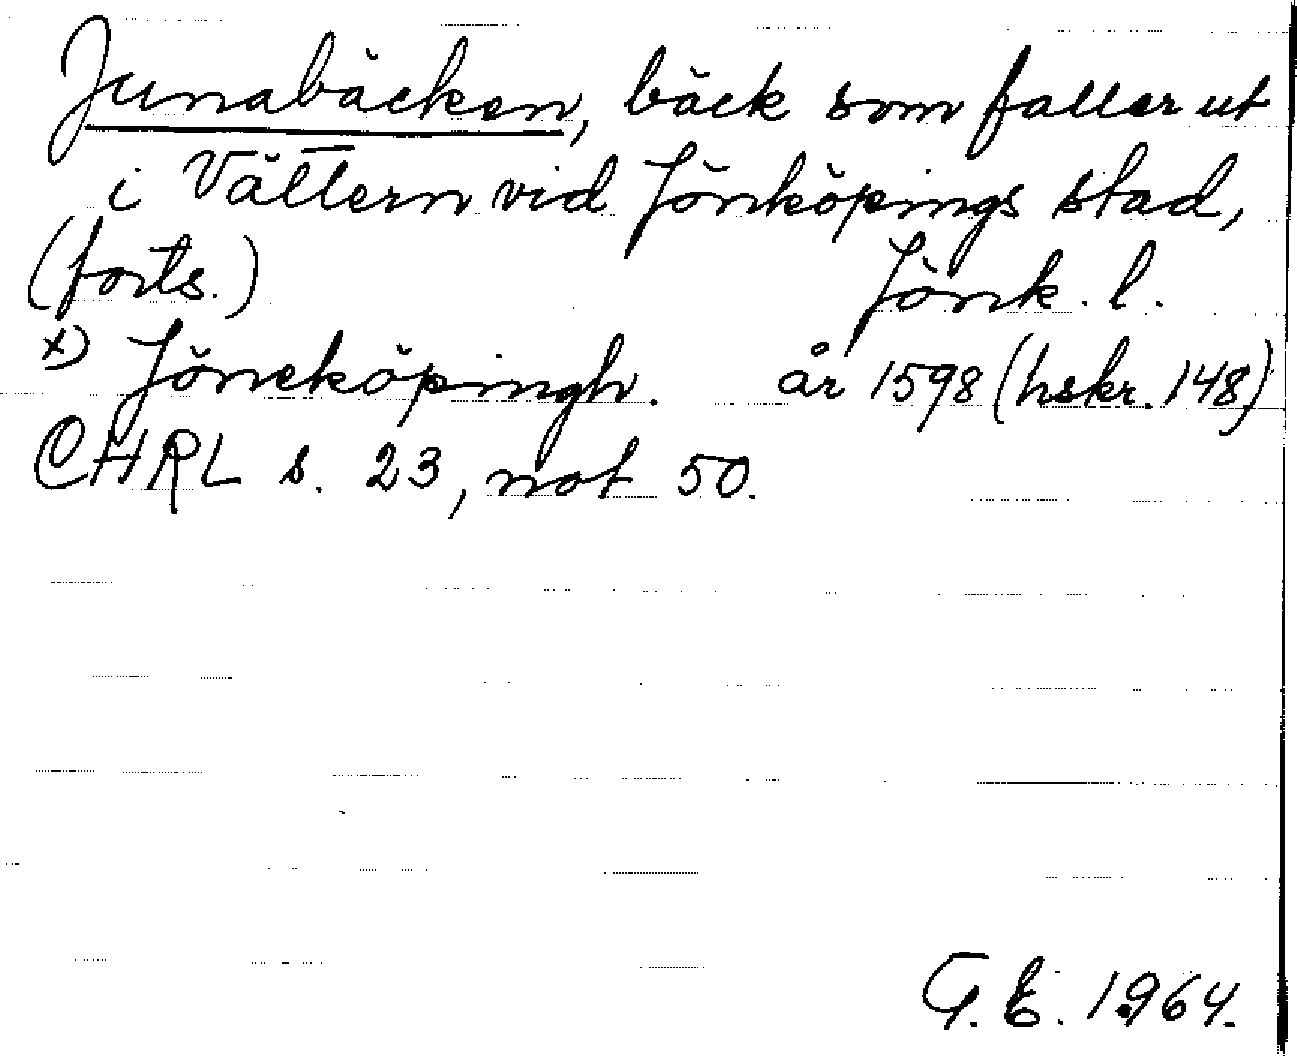 Junabäcken, bäck som faller ut
i Vättern vid Jönköpings stad,
(forts.) Jönk. l.
x) Jöneköpingh. år 1598 (hskr. 148)
CHRL s. 23, not 50.
G. E. 1964.